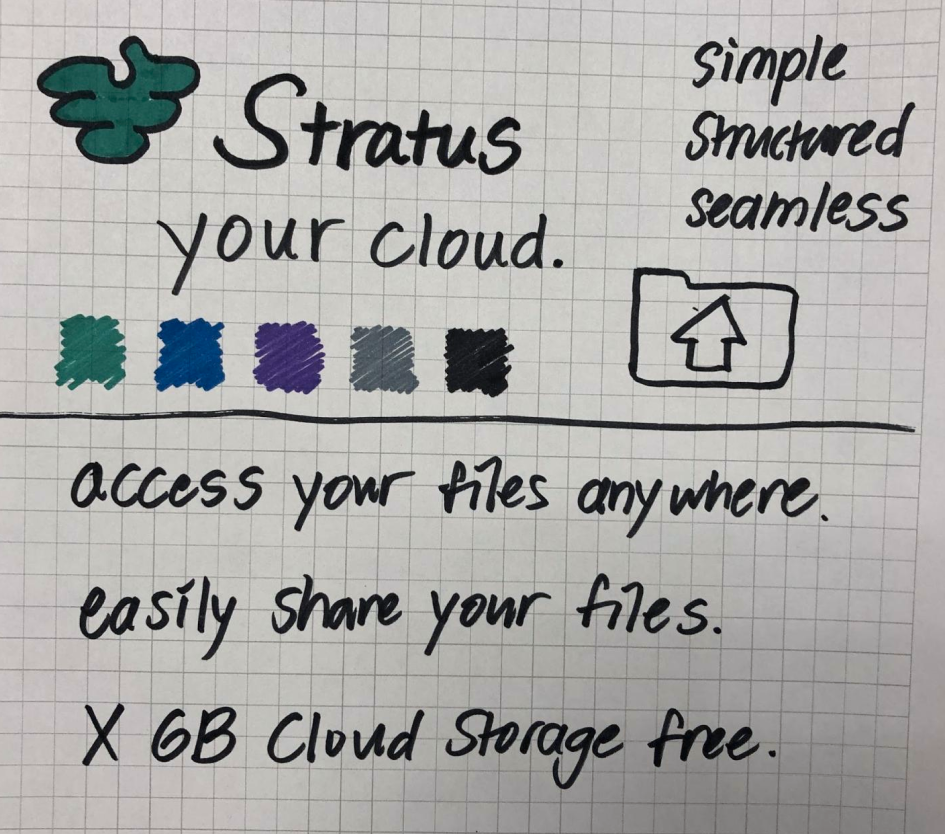 Stratus
your cloud.
simple
structured
seamless
access your files anywhere.
easily share your files.
X GB Cloud Storage free.